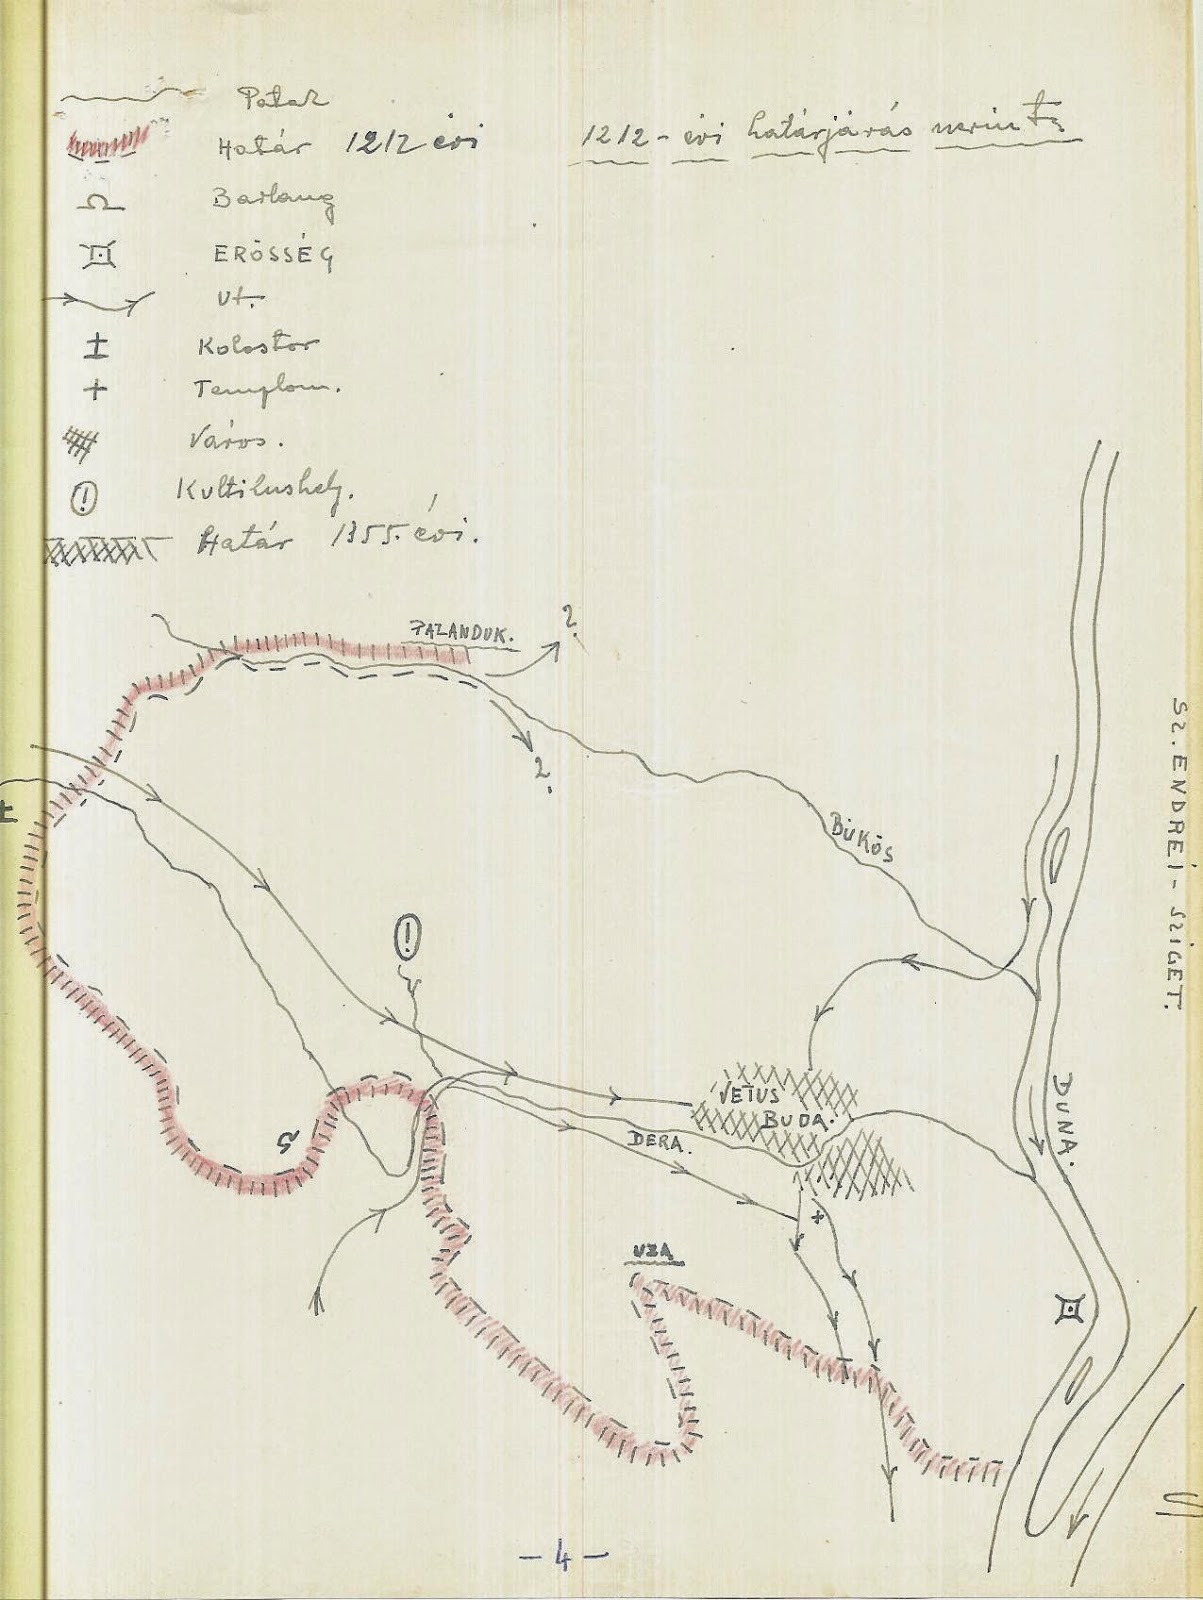 Patak
Határ 1212 évi
1212-évi határjárás szerint
Barlang
ERŐSSÉG
Ut.
Kolostor
Templom.
Város.
Kultikushely.
Határ 1355. évi.
PAZANDUK.
2.
2.
BÜKÖS
SZ. ENDREI-SZIGET.
VETUS
BUDA.
DERA.
DUNA.
UZA
-4-